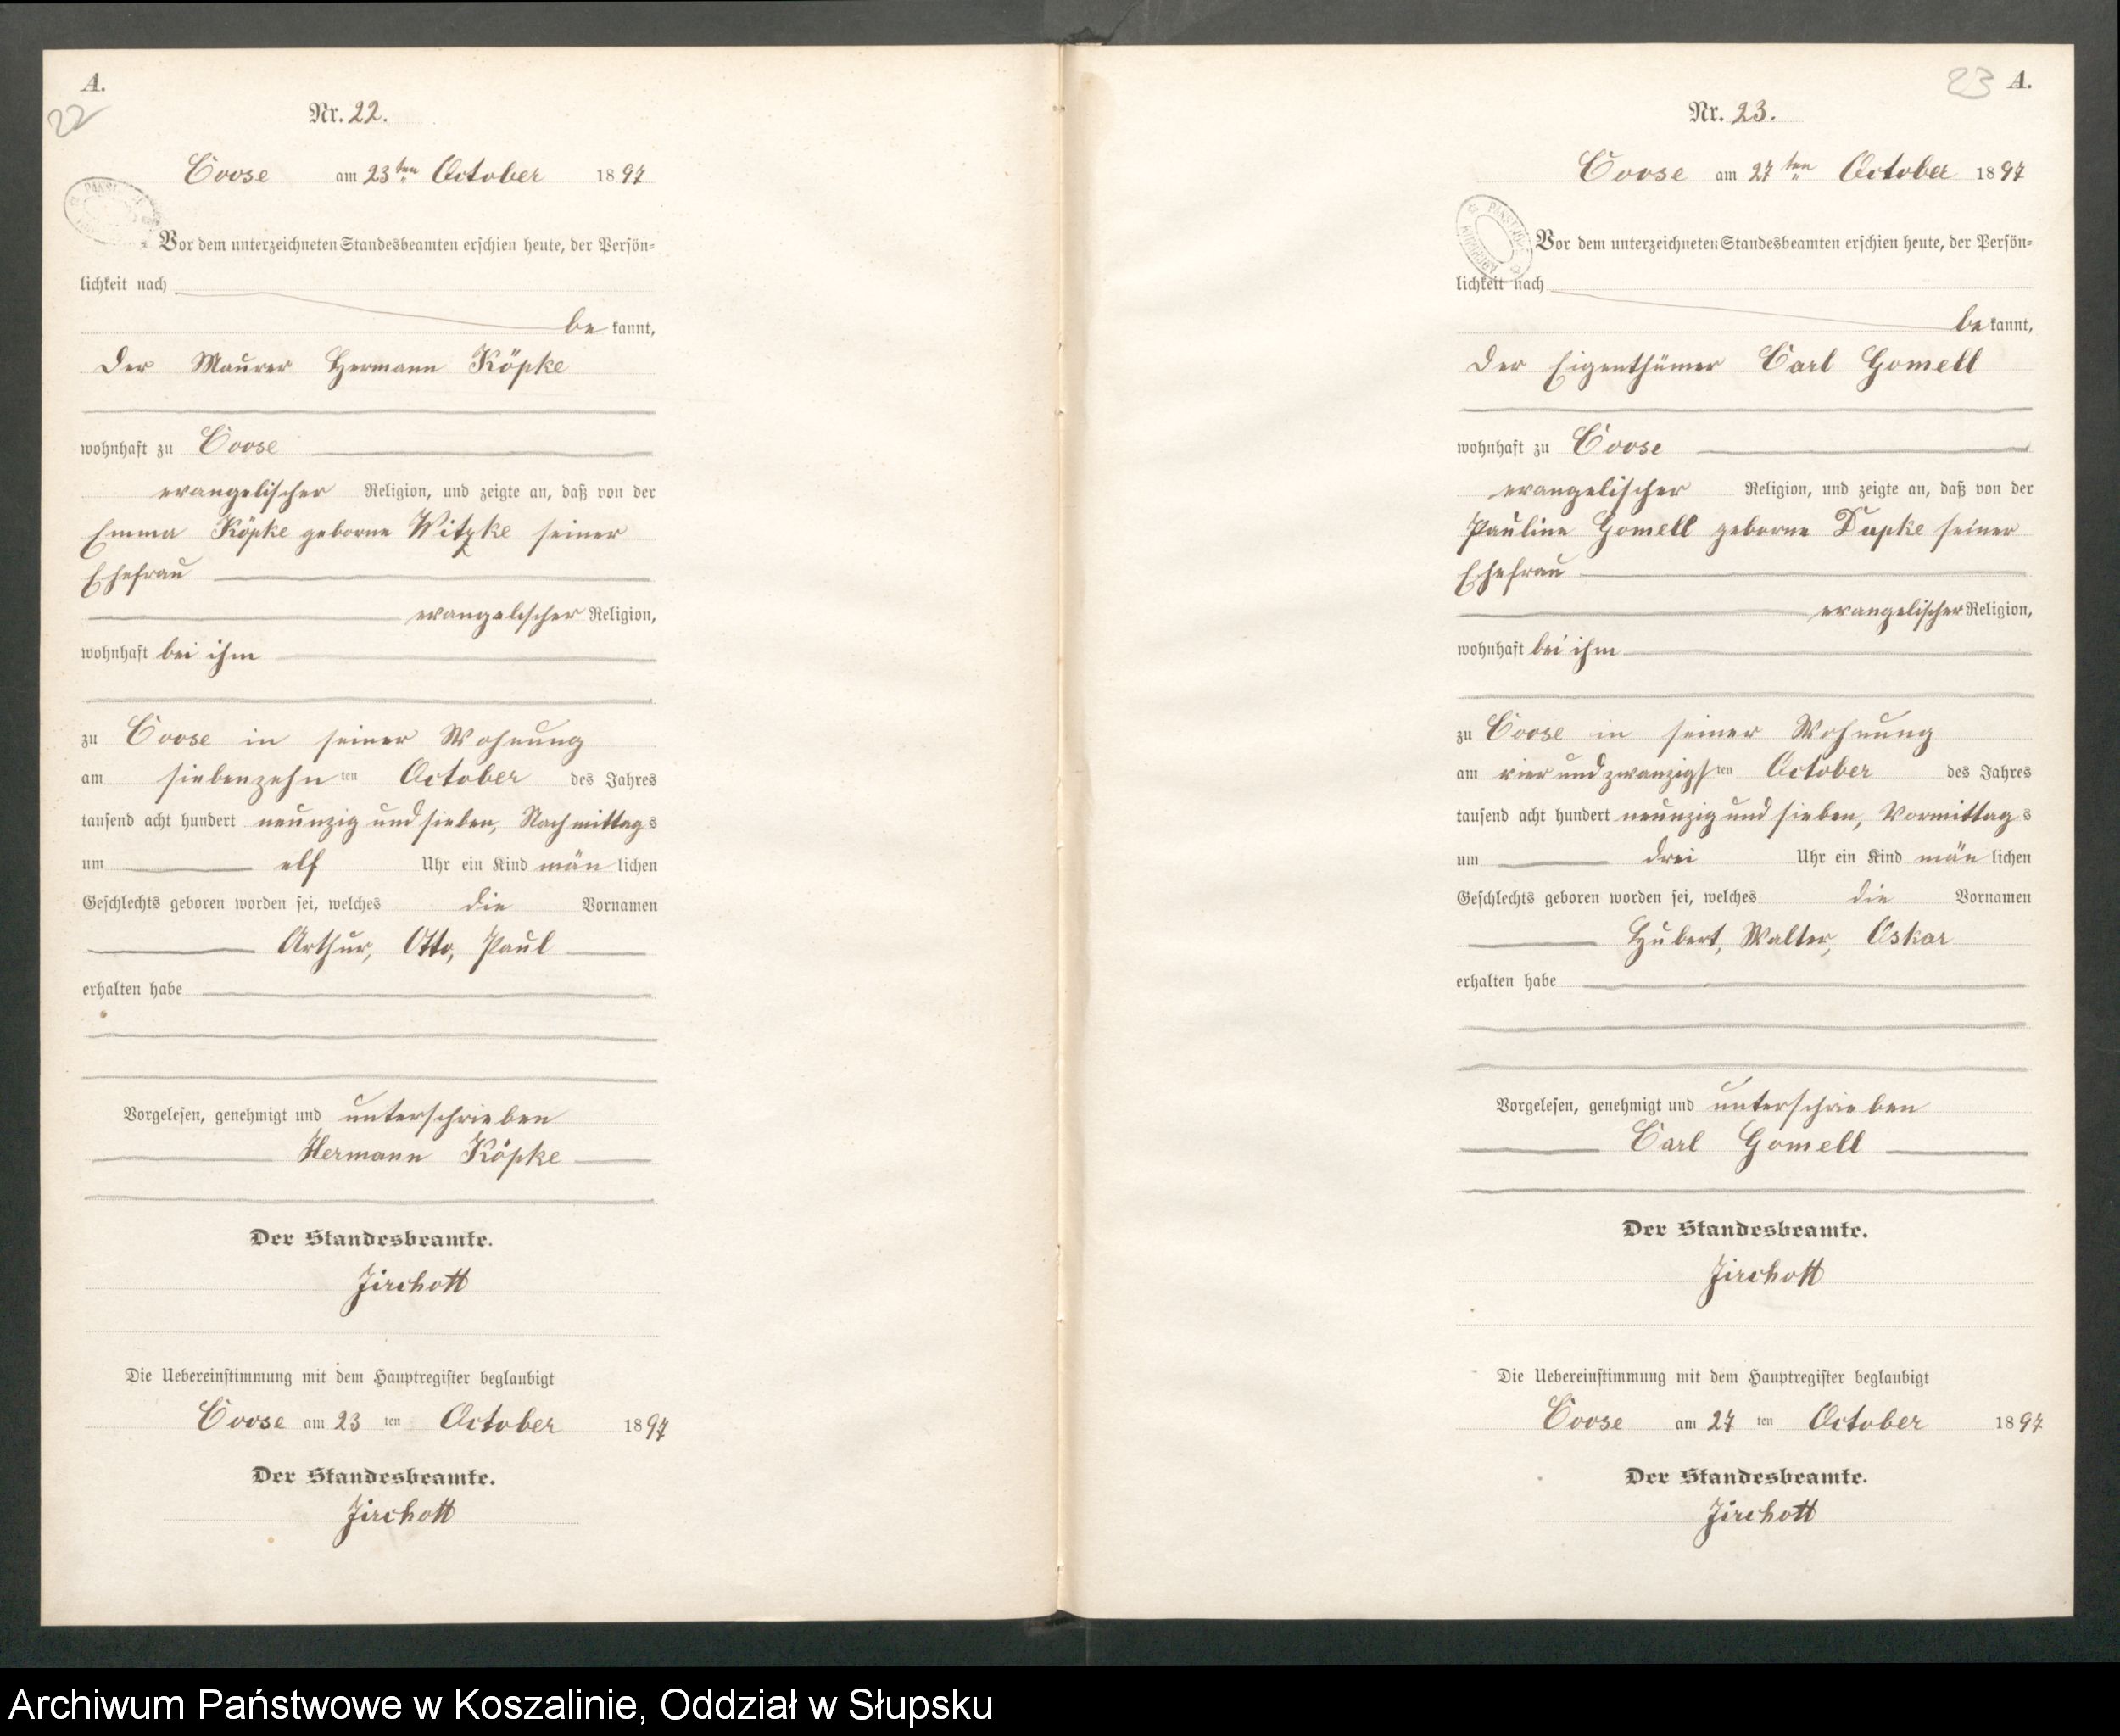 A.
22
Nr. 22.
Coose am 23ten October 1897
Vor dem unterzeichneten Standesbeamten erschien heute, der Persön=
lichkeit nach
be kannt,
Der Maurer Hermann Köpke
wohnhaft zu Coose
evangelischer Religion, und zeigte an, daß von der
Emma Köpke geborne Witzke seiner
Ehefrau
evangelischer Religion,
wohnhaft bei ihm
zu Coose in seiner Wohnung
am siebenzehn ten October des Jahres
tausend acht hundert neunzig und sieben, Nachmittags
um elf Uhr ein Kind män lichen
Geschlechts geboren worden sei, welches die Vornamen
Arthur, Otto, Paul
erhalten habe
Vorgelesen, genehmigt und unterschrieben
Hermann Köpke
Der Standesbeamte.
Jirchott
Die Uebereinstimmung mit dem Hauptregister beglaubigt
Coose am 23 ten October 1897
Der Standesbeamte.
Jirchott
23 A.
Nr. 23.
Coose am 27ten October 1897
Vor dem unterzeichneten Standesbeamten erschien heute, der Persön=
lichkeit nach
be kannt,
Der Eigenthümer Carl Gomell
wohnhaft zu Coose
evangelischer Religion, und zeigte an, daß von der
Pauline Gomell geborne Papke seiner
Ehefrau
evangelischer Religion,
wohnhaft bei ihm
zu Coose in seiner Wohnung
am vier und zwanzigsten October des Jahres
tausend acht hundert neunzig und sieben, Vormittags
um drei Uhr ein Kind män lichen
Geschlechts geboren worden sei, welches die Vornamen
Hubert, Walter, Oskar
erhalten habe
Vorgelesen, genehmigt und unterschrieben
Carl Gomell
Der Standesbeamte.
Jirchott
Die Uebereinstimmung mit dem Hauptregister beglaubigt
Coose am 27 ten October 1897
Der Standesbeamte.
Jirchott
Archiwum Państwowe w Koszalinie, Oddział w Słupsku